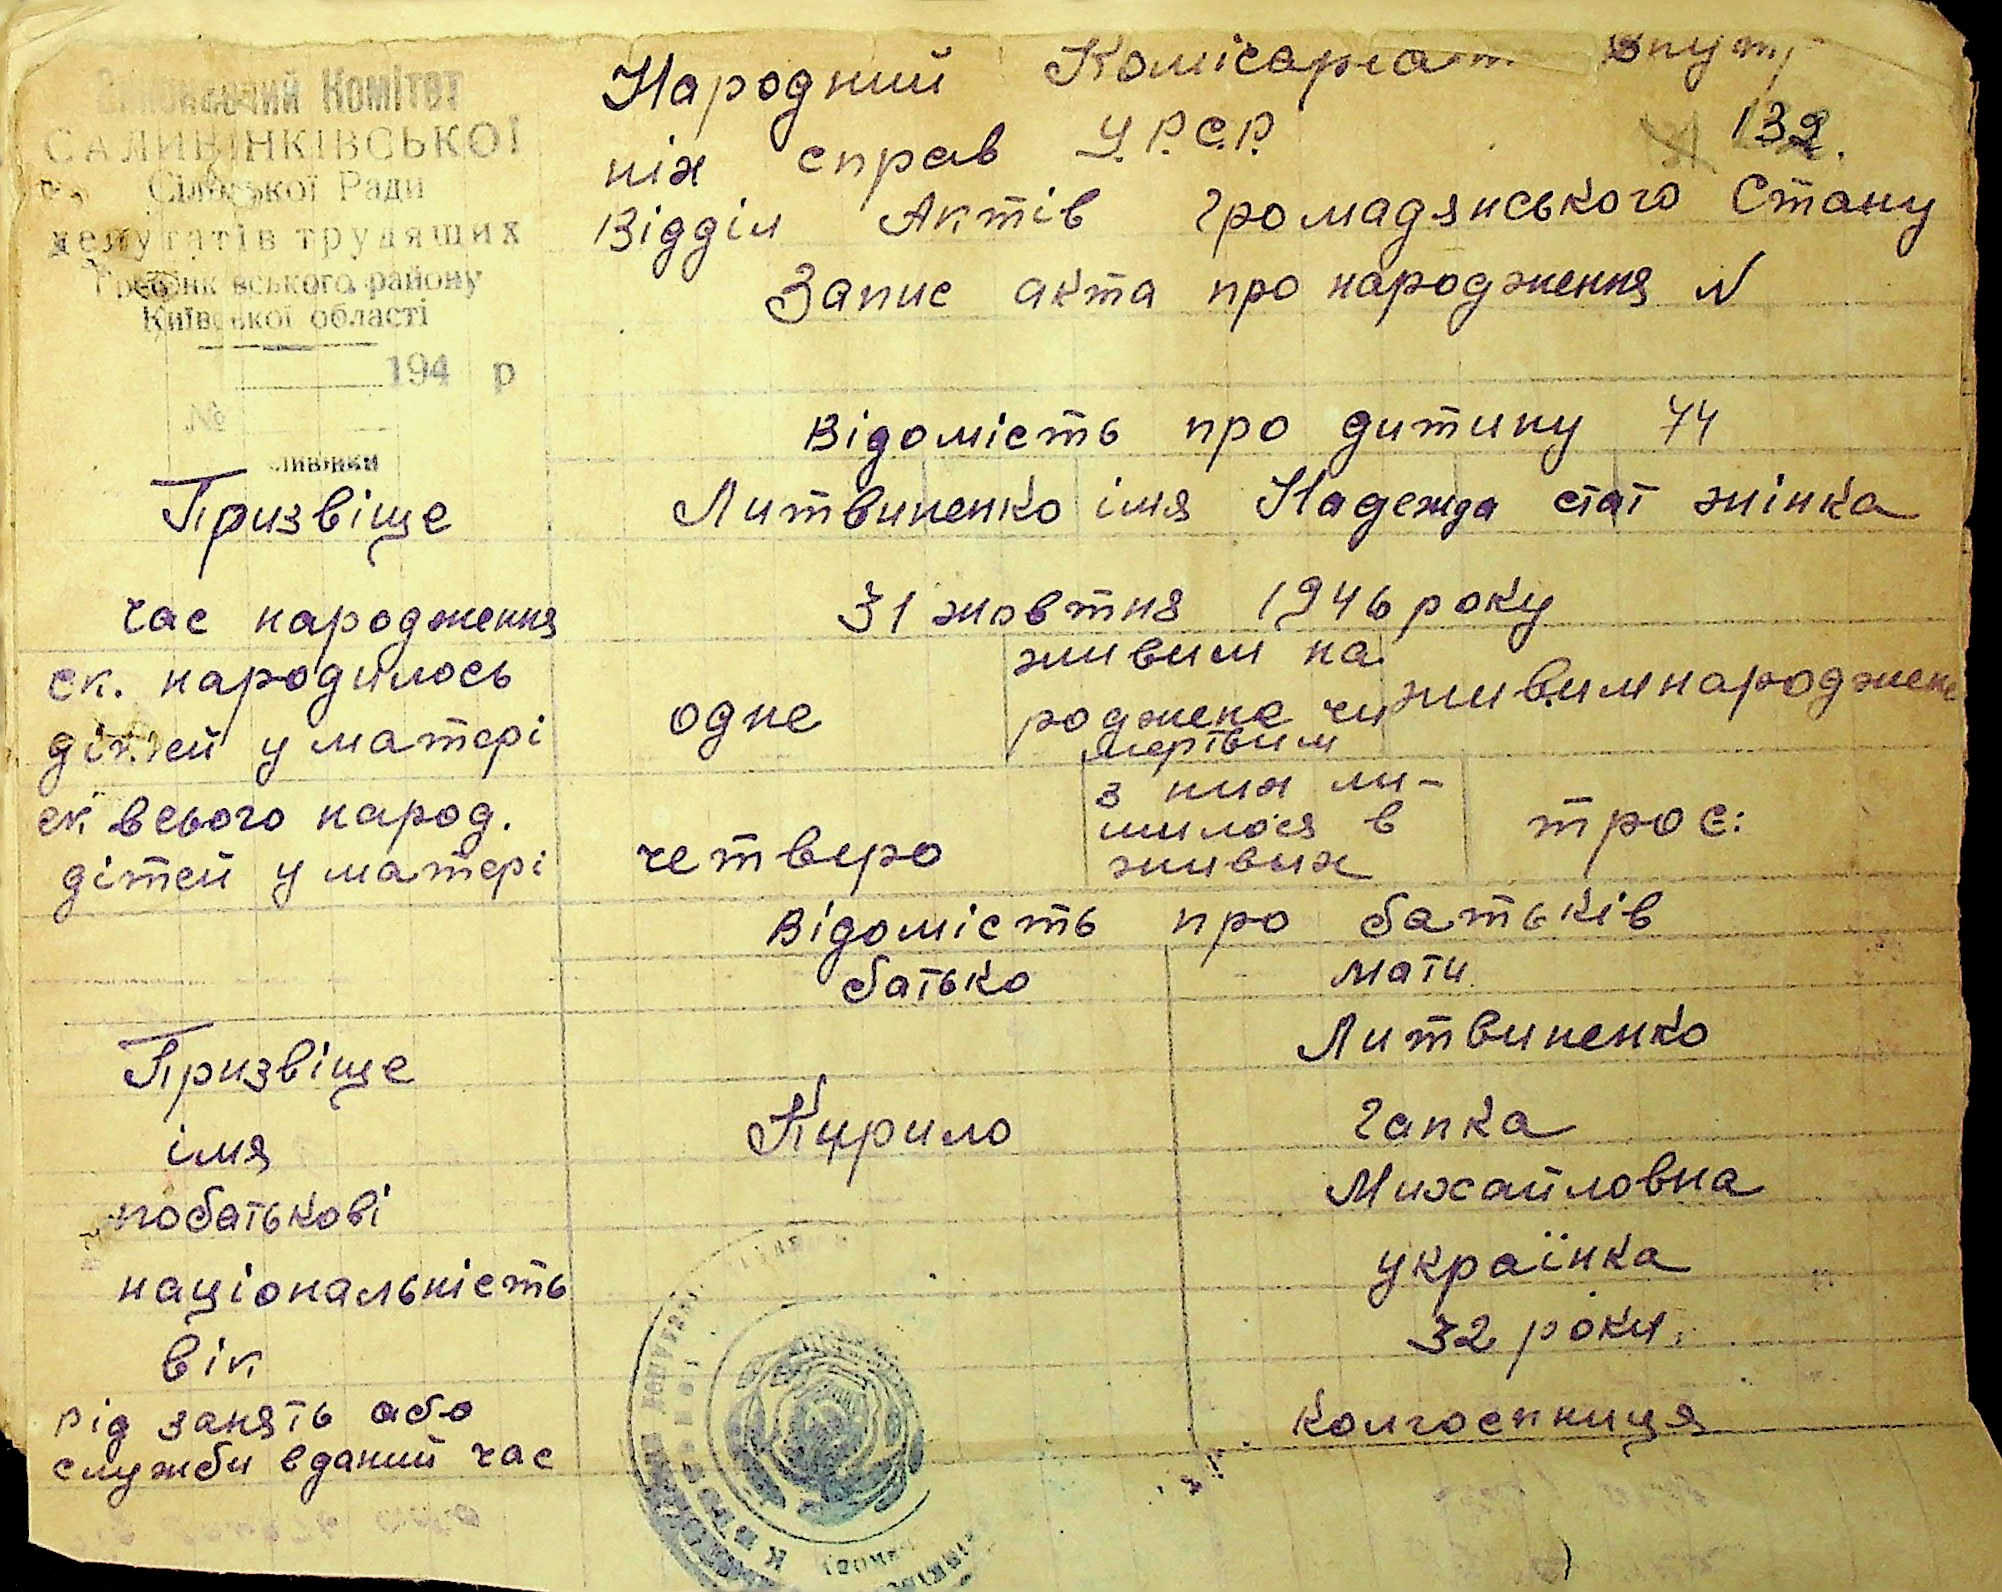 Виконавчий Комітет
САЛИВІНКІВСЬКОЇ
Сільської Ради
депутатів трудящих
Гребінківського району
Київської області
194 р
№
Народний Комісаріат Внутр
ніх справ У.Р.С.Р.
132.
Відділ Актів Громадянського Стану
Запис акта про народження N
Відомість про дитину 74
Призвіще Литвиненко імя Надежда стат жінка
час народження 31 жовтня 1946 року
ск. народилось
дітей у матері
одне
живим на
роджене чи
мертвим
живимнароджене
ск всього народ.
дітей у матері
четверо
з них ли-
шилося в
живих
троє:
Відомість про батьків
батько мати
Призвіще Литвиненко
імя Кирило Гапка
побатькові Михайловна
національність українка
вік 32 роки.
рід занять або
служби вданий час
колгоспниця